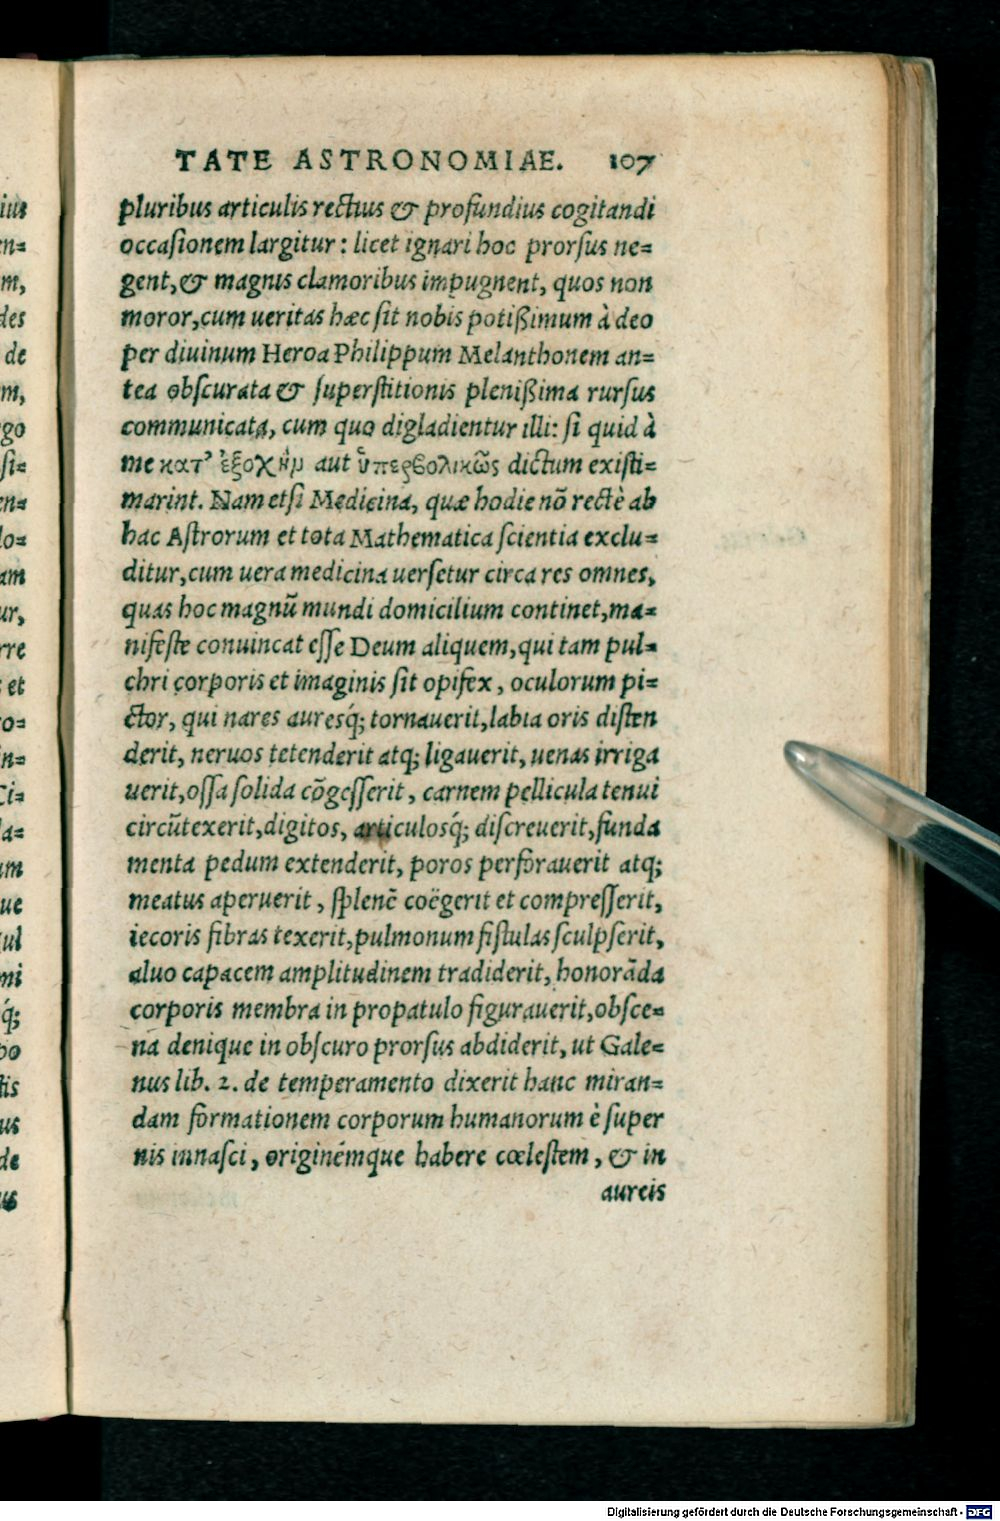 TATE ASTRONOMIAE. 107
pluribus articulis rectius & profundius cogitandi
occaſionem largitur: licet ignari hoc prorſus ne=
gent, & magnis clamoribus impugnent, quos non
moror, cum ueritas hæc ſit nobis potißimum à deo
per diuinum Heroa Philippum Melanthonem an=
tea obſcurata & ſuperſtitionis plenißima rurſus
communicata, cum quo digladientur illi: ſi quid à
me κατ’ ἐξοχὴμ aut ὑπερβολικῶς dictum exiſti=
marint. Nam etſi Medicina, quæ hodie nõ rectè ab
hac Aſtrorum et tota Mathematica ſcientia exclu=
ditur, cum uera medicina uerſetur circa res omnes,
quas hoc magnũ mundi domicilium continet, ma=
nifeſte conuincat eſſe Deum aliquem, qui tam pul=
chri corporis et imaginis ſit opifex, oculorum pi=
ctor, qui nares auresq́; tornauerit, labia oris diſten
derit, neruos tetenderit atq; ligauerit, uenas irriga
uerit, oſſa ſolida cõgeſſerit, carnem pellicula tenui
circũtexerit, digitos, articulosq́; diſcreuerit, funda
menta pedum extenderit, poros perforauerit atq;
meatus aperuerit, ſplenẽ coëgerit et compreſſerit,
iecoris fibras texerit, pulmonum fiſtulas ſculpſerit,
aluo capacem amplitudinem tradiderit, honorãda
corporis membra in propatulo figurauerit, obſce=
na denique in obſcuro prorſus abdiderit, ut Gale=
nus lib. 2. de temperamento dixerit hanc miran=
dam formationem corporum humanorum è ſuper
nis innaſci, originémque habere cœleſtem, & in
aureis
ius
en=
m,
des
de
m,
go
ſi=
en=
lo=
am
ur,
rre
et
ro=
in=
Ci=
la=
um
ue
ul
mi
q́;
po
ſtis
us
de
us
Digitalisierung gefördert durch die Deutsche Forschungsgemeinschaft - DFG